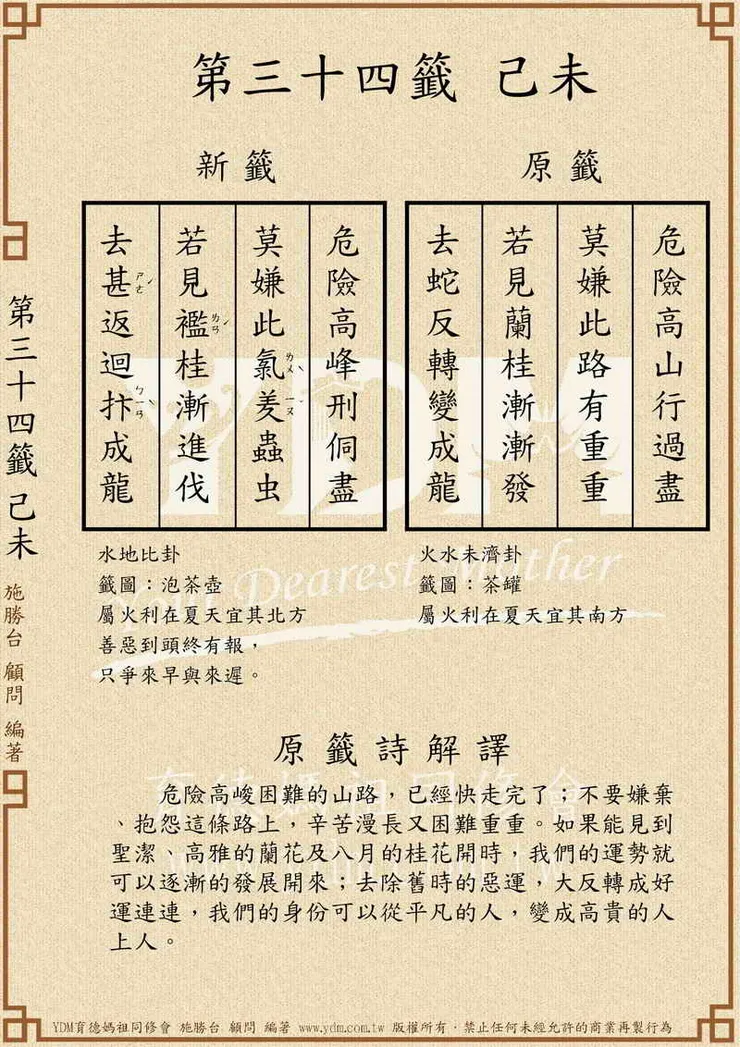 第三十四籤 己未
原籤
危險高山行過盡
莫嫌此路有重重
若見蘭桂漸漸發
去蛇反轉變成龍
火水未濟卦
籤圖：茶罐
屬火利在夏天宜其南方
新籤
危險高峰刑侗盡
莫嫌此氣羑蟲虫
若見襤桂漸進伐
去甚返迴抃成龍
ㄌㄢˊ
ㄕㄜˊ
ㄅㄧㄢˋ
水地比卦
籤圖：泡茶壺
屬火利在夏天宜其北方
善惡到頭終有報，
只爭來早與來遲。
原籤詩解譯
危險高峻困難的山路，已經快走完了；不要嫌棄
、抱怨這條路上，辛苦漫長又困難重重。如果能見到
聖潔、高雅的蘭花及八月的桂花開時，我們的運勢就
可以逐漸的發展開來；去除舊時的惡運，大反轉成好
運連連，我們的身份可以從平凡的人，變成高貴的人
上人。
第三十四籤 己未
施勝台 顧問 編著
YDM
Your Dearest Mother
育德媽祖同修會
YDM育德媽祖同修會 施勝台 顧問 編著 www.ydm.com.tw 版權所有‧禁止任何未經允許的商業再製行為